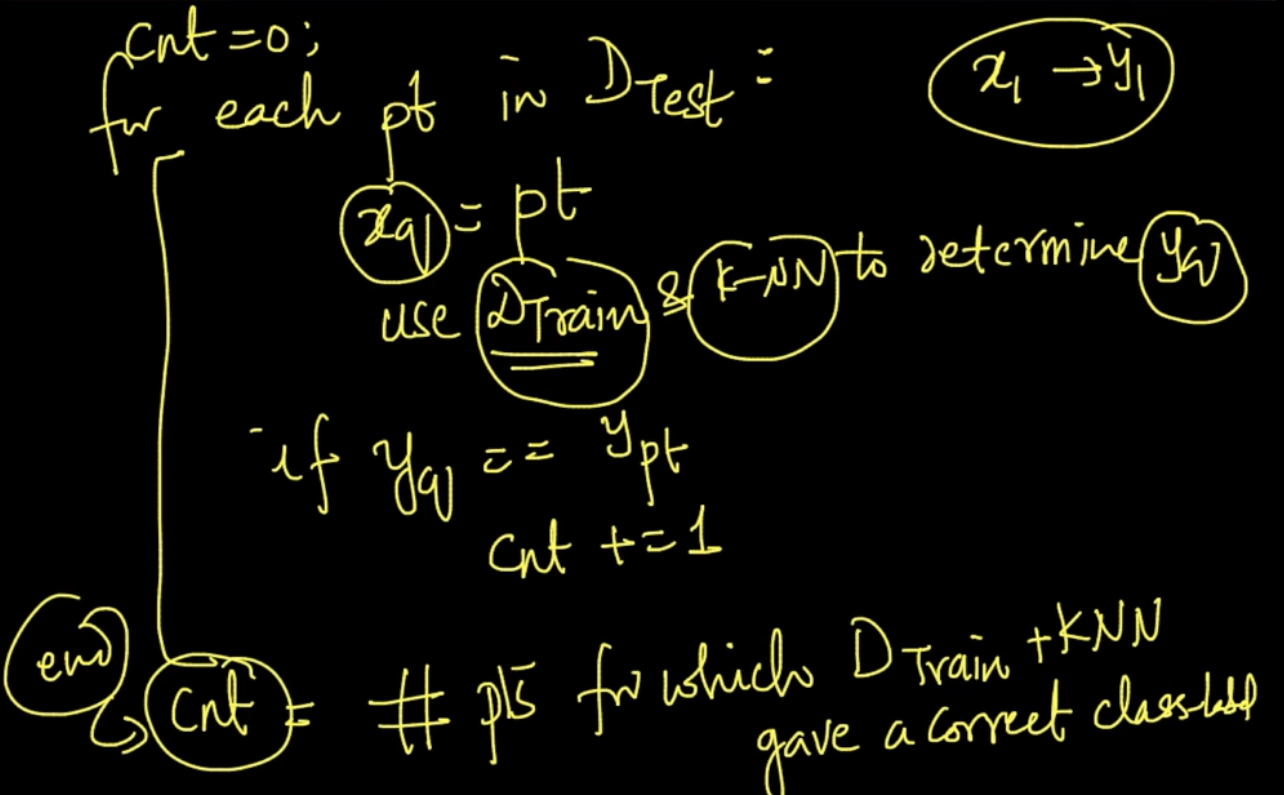 Cnt = 0;
for each pt in DTest :
x1 → y1
xq = pt
use DTrain & K-NN to determine yq
if yq == ypt
Cnt += 1
end
Cnt = # pts for which DTrain + KNN
gave a correct class-label